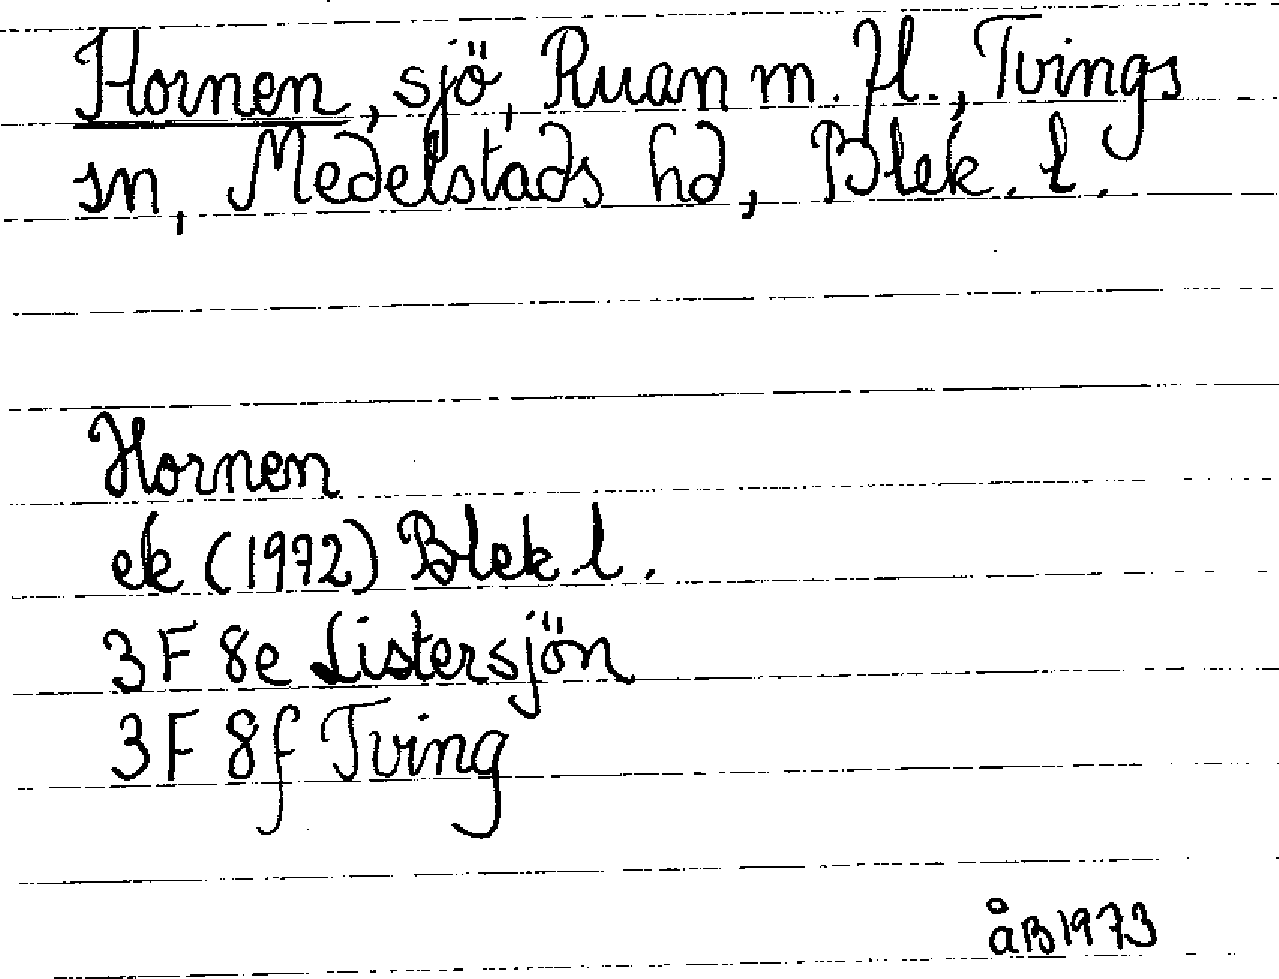 Hornen, sjö, Ruan m. fl., Tvings
sn, Medelstads hd, Blek. l.
Hornen
ek (1972) Blek l.
3F 8e Listersjön
3F 8f Tving
åB 1973